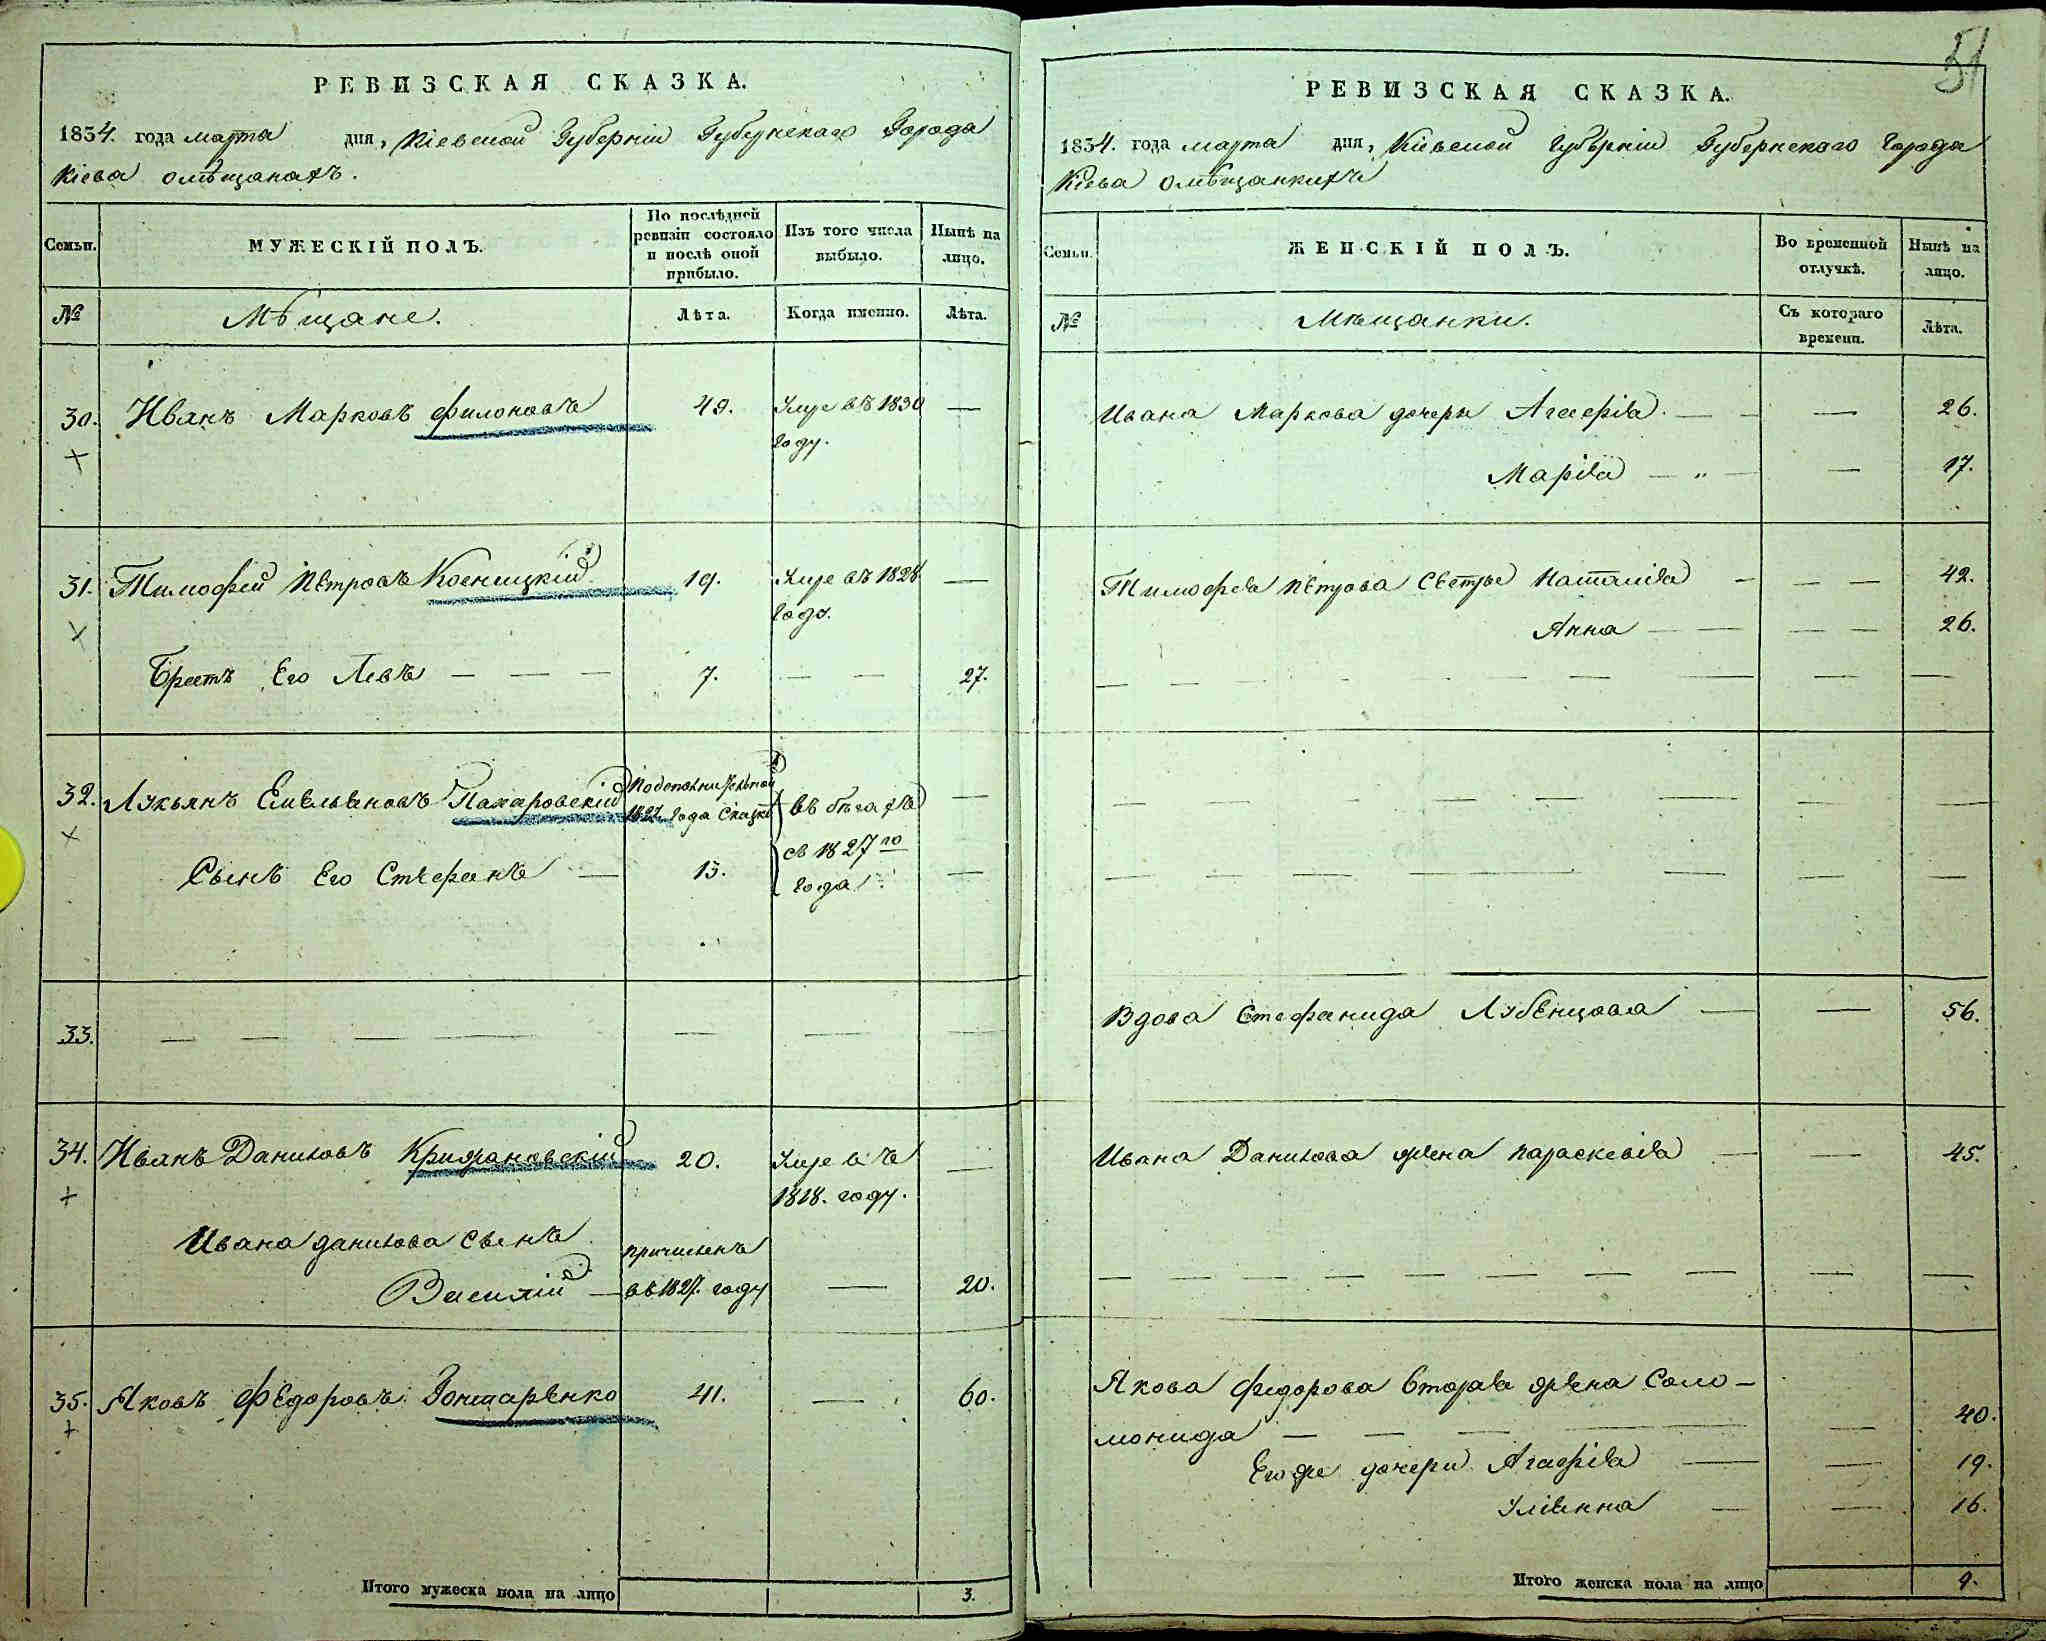 РЕВИЗСКАЯ СКАЗКА.
1834. года марта дня, Кіевской Губерніи Губернскаго Города
Кіева омѣщанахъ.
Семьи.
МУЖЕСКІЙ ПОЛЪ.
По послѣдней ревизіи состояло и послѣ оной прибыло.
Изъ того числа выбыло.
Нынѣ на лицо.
№
Мѣщане.
Лѣта.
Когда именно.
Лѣта.
30. Иванъ Марковъ Филоновъ 49. Умре въ 1830 —
году.
31. Тимофей Петровъ 19. Умре въ 1828 —
году.
Братъ Его Левъ — — — 7. — — 27.
32. Лукьянъ Емельяновъ 1827 года сказки въ бѣгахъ —
съ 1827го
Сынъ Его Стефанъ — 13. года. —
33. — — — — — — —
34. Иванъ Даниловъ Крижановскій 20. Умре въ —
1818. году.
Ивана данилова сынъ причисленъ
Василій — въ 1827. году — 20.
35. Яковъ Федоровъ Гончаренко 41. — 60.
Итого мужеска пола на лицо 3.
51
РЕВИЗСКАЯ СКАЗКА.
1834. года марта дня, Кіевской Губерніи Губернскаго Города
Кіева омѣщанкахъ
Семьи.
ЖЕНСКІЙ ПОЛЪ.
Во временной отлучкѣ.
Нынѣ на лицо.
№
Мѣщанки.
Съ котораго времени.
Лѣта.
Ивана Маркова дочери Агафія — — 26.
Марія — „ — — 17.
Тимофея Петрова сестры Наталія — — — 42.
Анна — — — — 26.
Вдова Стефанида Лубенцова — — 56.
Ивана Данилова жена Параскевія — — 45.
Якова Федорова вторая жена Соло-
монида — — — — — 40.
Его же дочери Агафія — — 19.
Уліанна — — 16.
Итого женска пола на лицо 9.